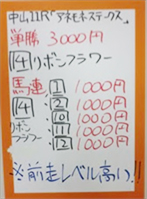 中山11R「アネモネステークス」
単勝 3000円
14 リボンフラワー
馬連 1 1000円
14 2 1000円
リボンフラワー 10 1000円
11 1000円
12 1000円
※前走レベル高い!!